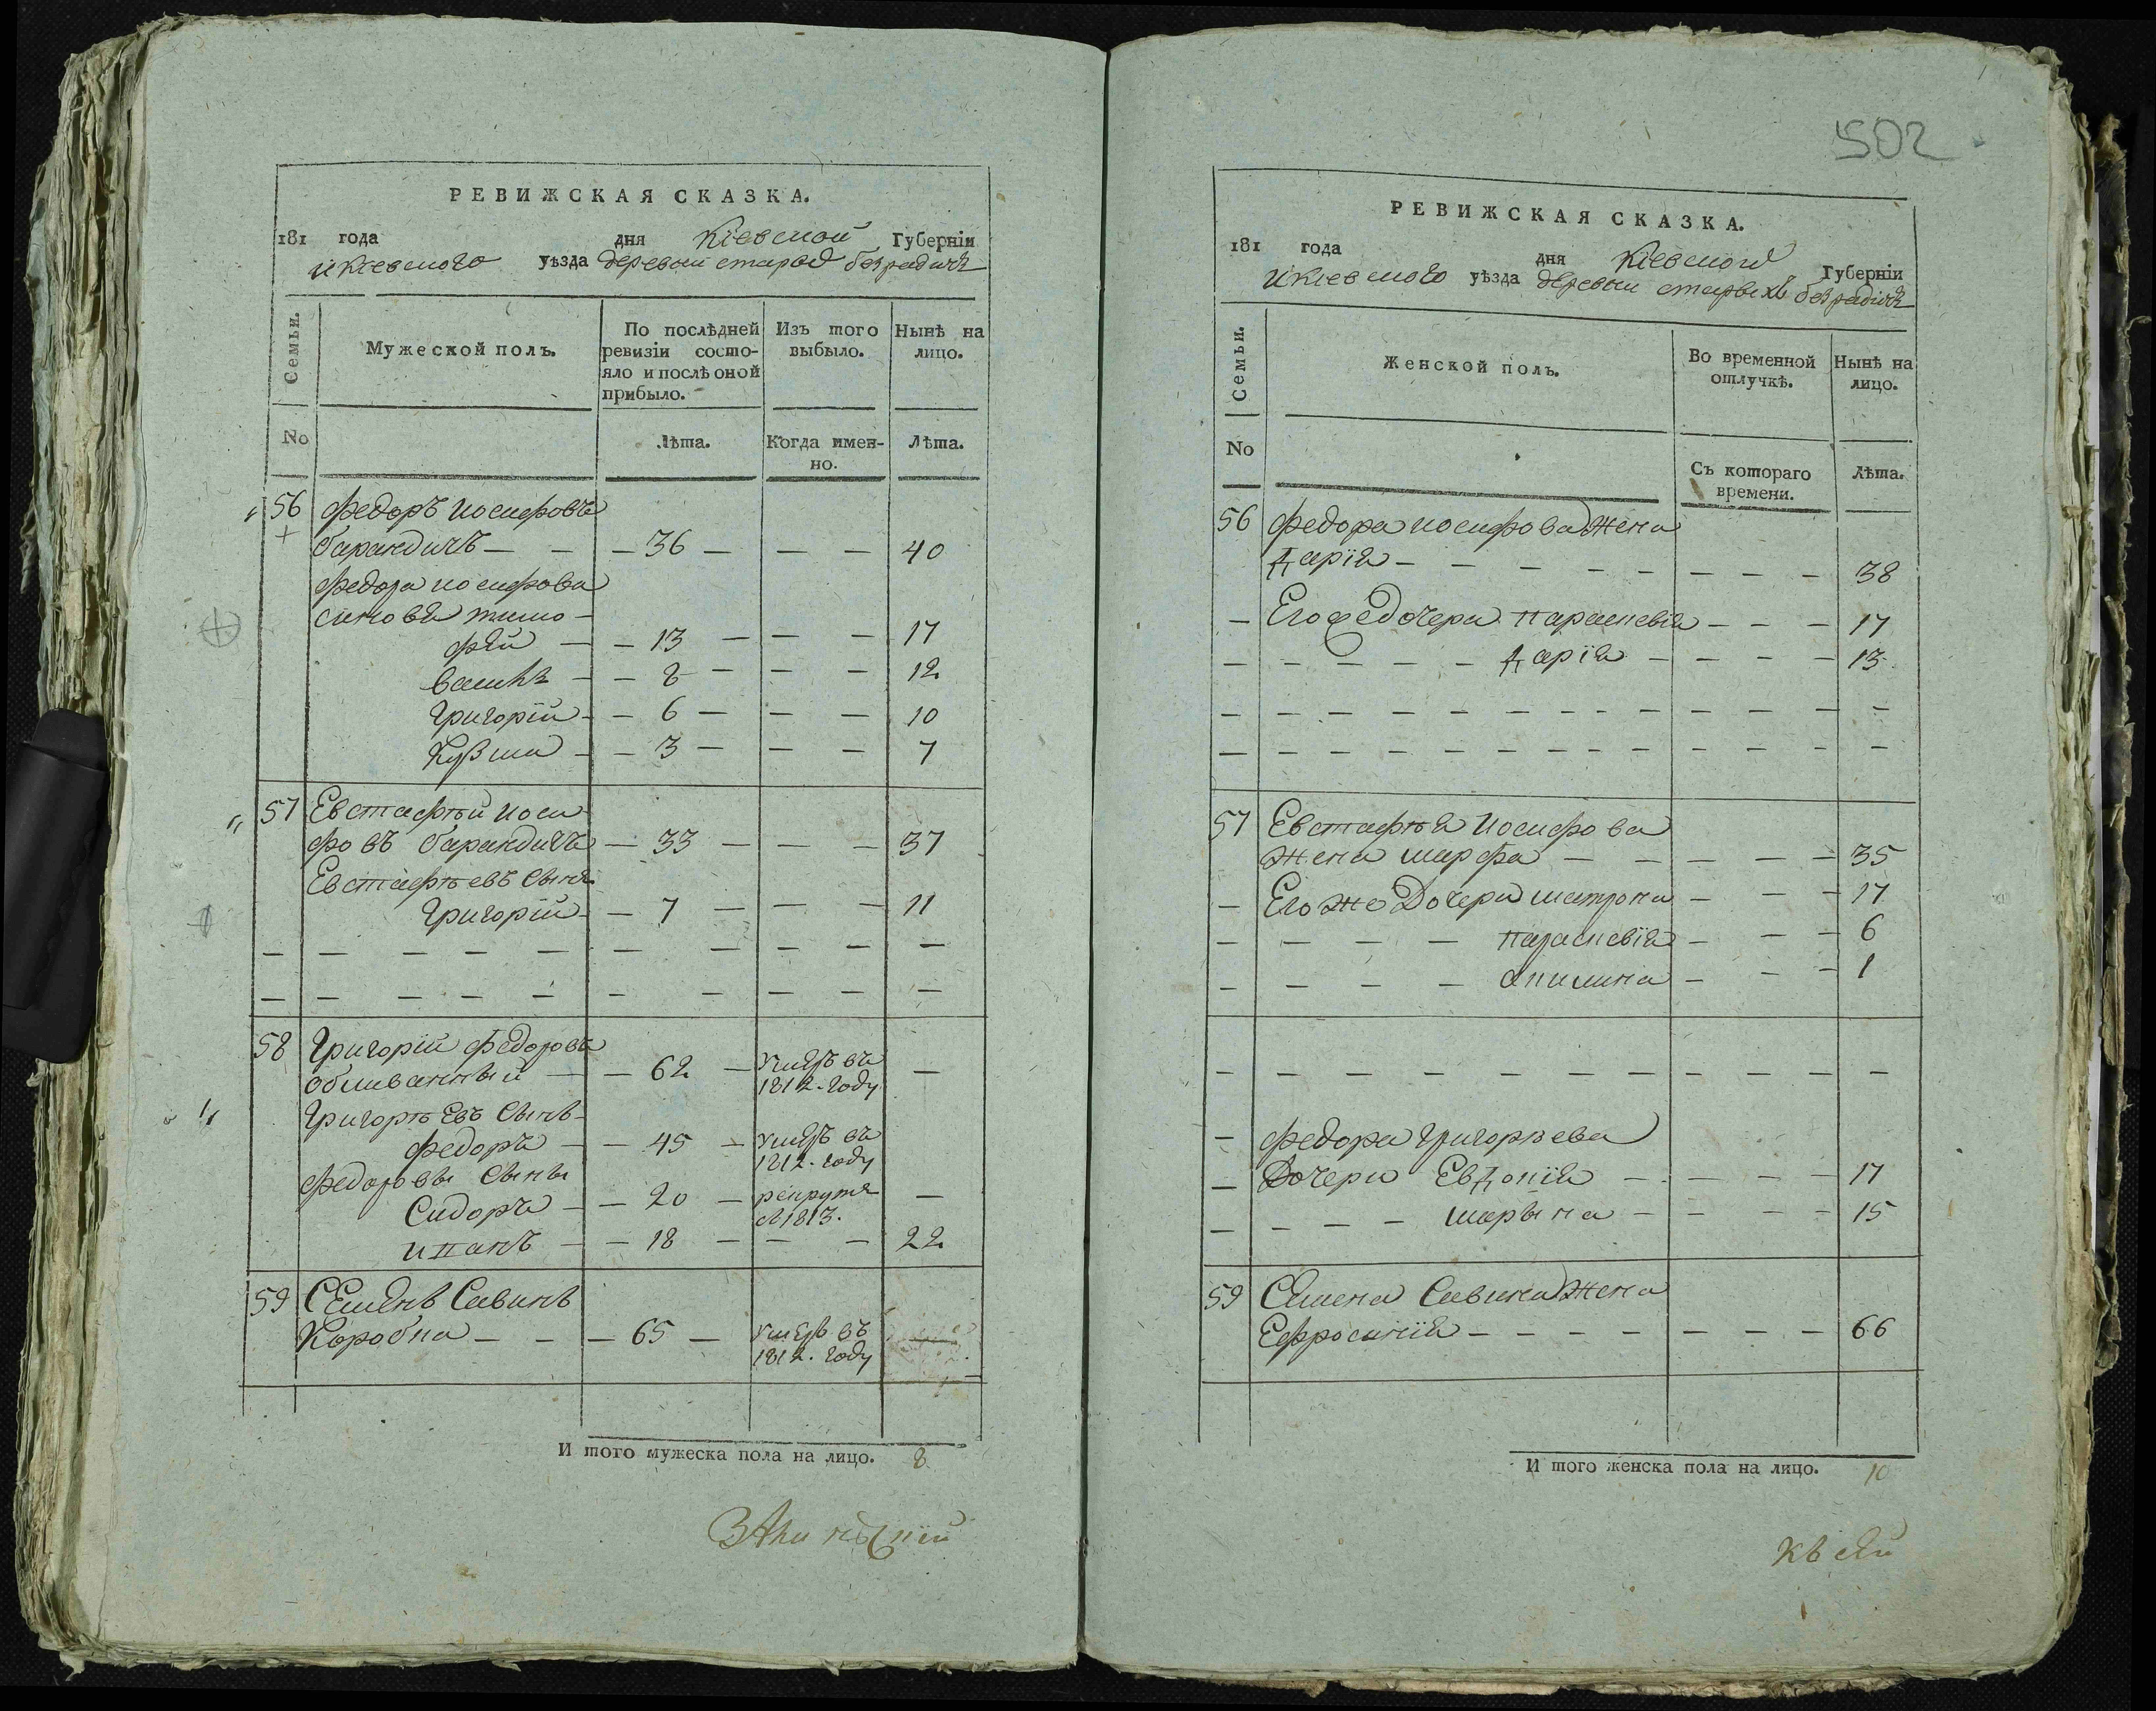 РЕВИЖСКАЯ СКАЗКА.
181 года дня Кіевской Губерніи
и Кіевского уѣзда деревни старой безрадичъ
Семьи.
Мужеской полъ.
По послѣдней ревизіи состояло и послѣ оной прибыло.
Изъ того выбыло.
Нынѣ на лицо.
No
Лѣта.
Когда именно.
Лѣта.
56 Федоръ иосифовъ
барандичъ — — — 36 — — — 40
Федора иосифова
синовя тимо-
фей — — 13 — — — 17
— 8 — — — 12
Григорій — — 6 — — — 10
Кузма — — 3 — — — 7
57 Евстафтй иоси
фовъ барандичъ — 33 — — — 37
Евстафтевъ Сынъ
Григорій — — 7 — — — 11
— — — — — — — — — —
— — — — — — — — — —
58 Григорій Федоровъ
— — 62 — умеръ въ 1812. году —
Григортевъ Сынъ —
Федоръ — — 45 — умеръ въ 1812. году
Федоровы Сыны
Сидоръ — — 20 — рекрутъ 1813. —
— — 18 — — — 22
59 Семенъ Савинъ
Коробка — — — 65 — умеръ въ 1812. году
И того мужеска пола на лицо. 8
502
РЕВИЖСКАЯ СКАЗКА.
181 года дня Кіевской Губерніи
и Кіевского уѣзда деревни старыхъ безрадичъ
Семьи.
Женской полъ.
Во временной отлучкѣ.
Нынѣ на лицо.
No
Съ котораго времени.
Лѣта.
56 Федора иосифова жена
Дарія — — — — — — — — 38
— Его же дочери параскевія — — — 17
— — — — — — Дарія — — — — 13
— — — — — — — — — — — —
— — — — — — — — — — — —
57 Евстафтя иосифова
жена марфа — — — — — 35
— Его же Дочери матрона — — — 17
— — — — параскевія — — — 6
— — — — акилина — — — 1
— — — — — — — — — — — —
— Федора григорьева
— Дочери Евдокія — — — — 17
— — — — марына — — — — 15
59 Семена Савина жена
Ефросинія — — — — — — — 66
И того женска пола на лицо. 10